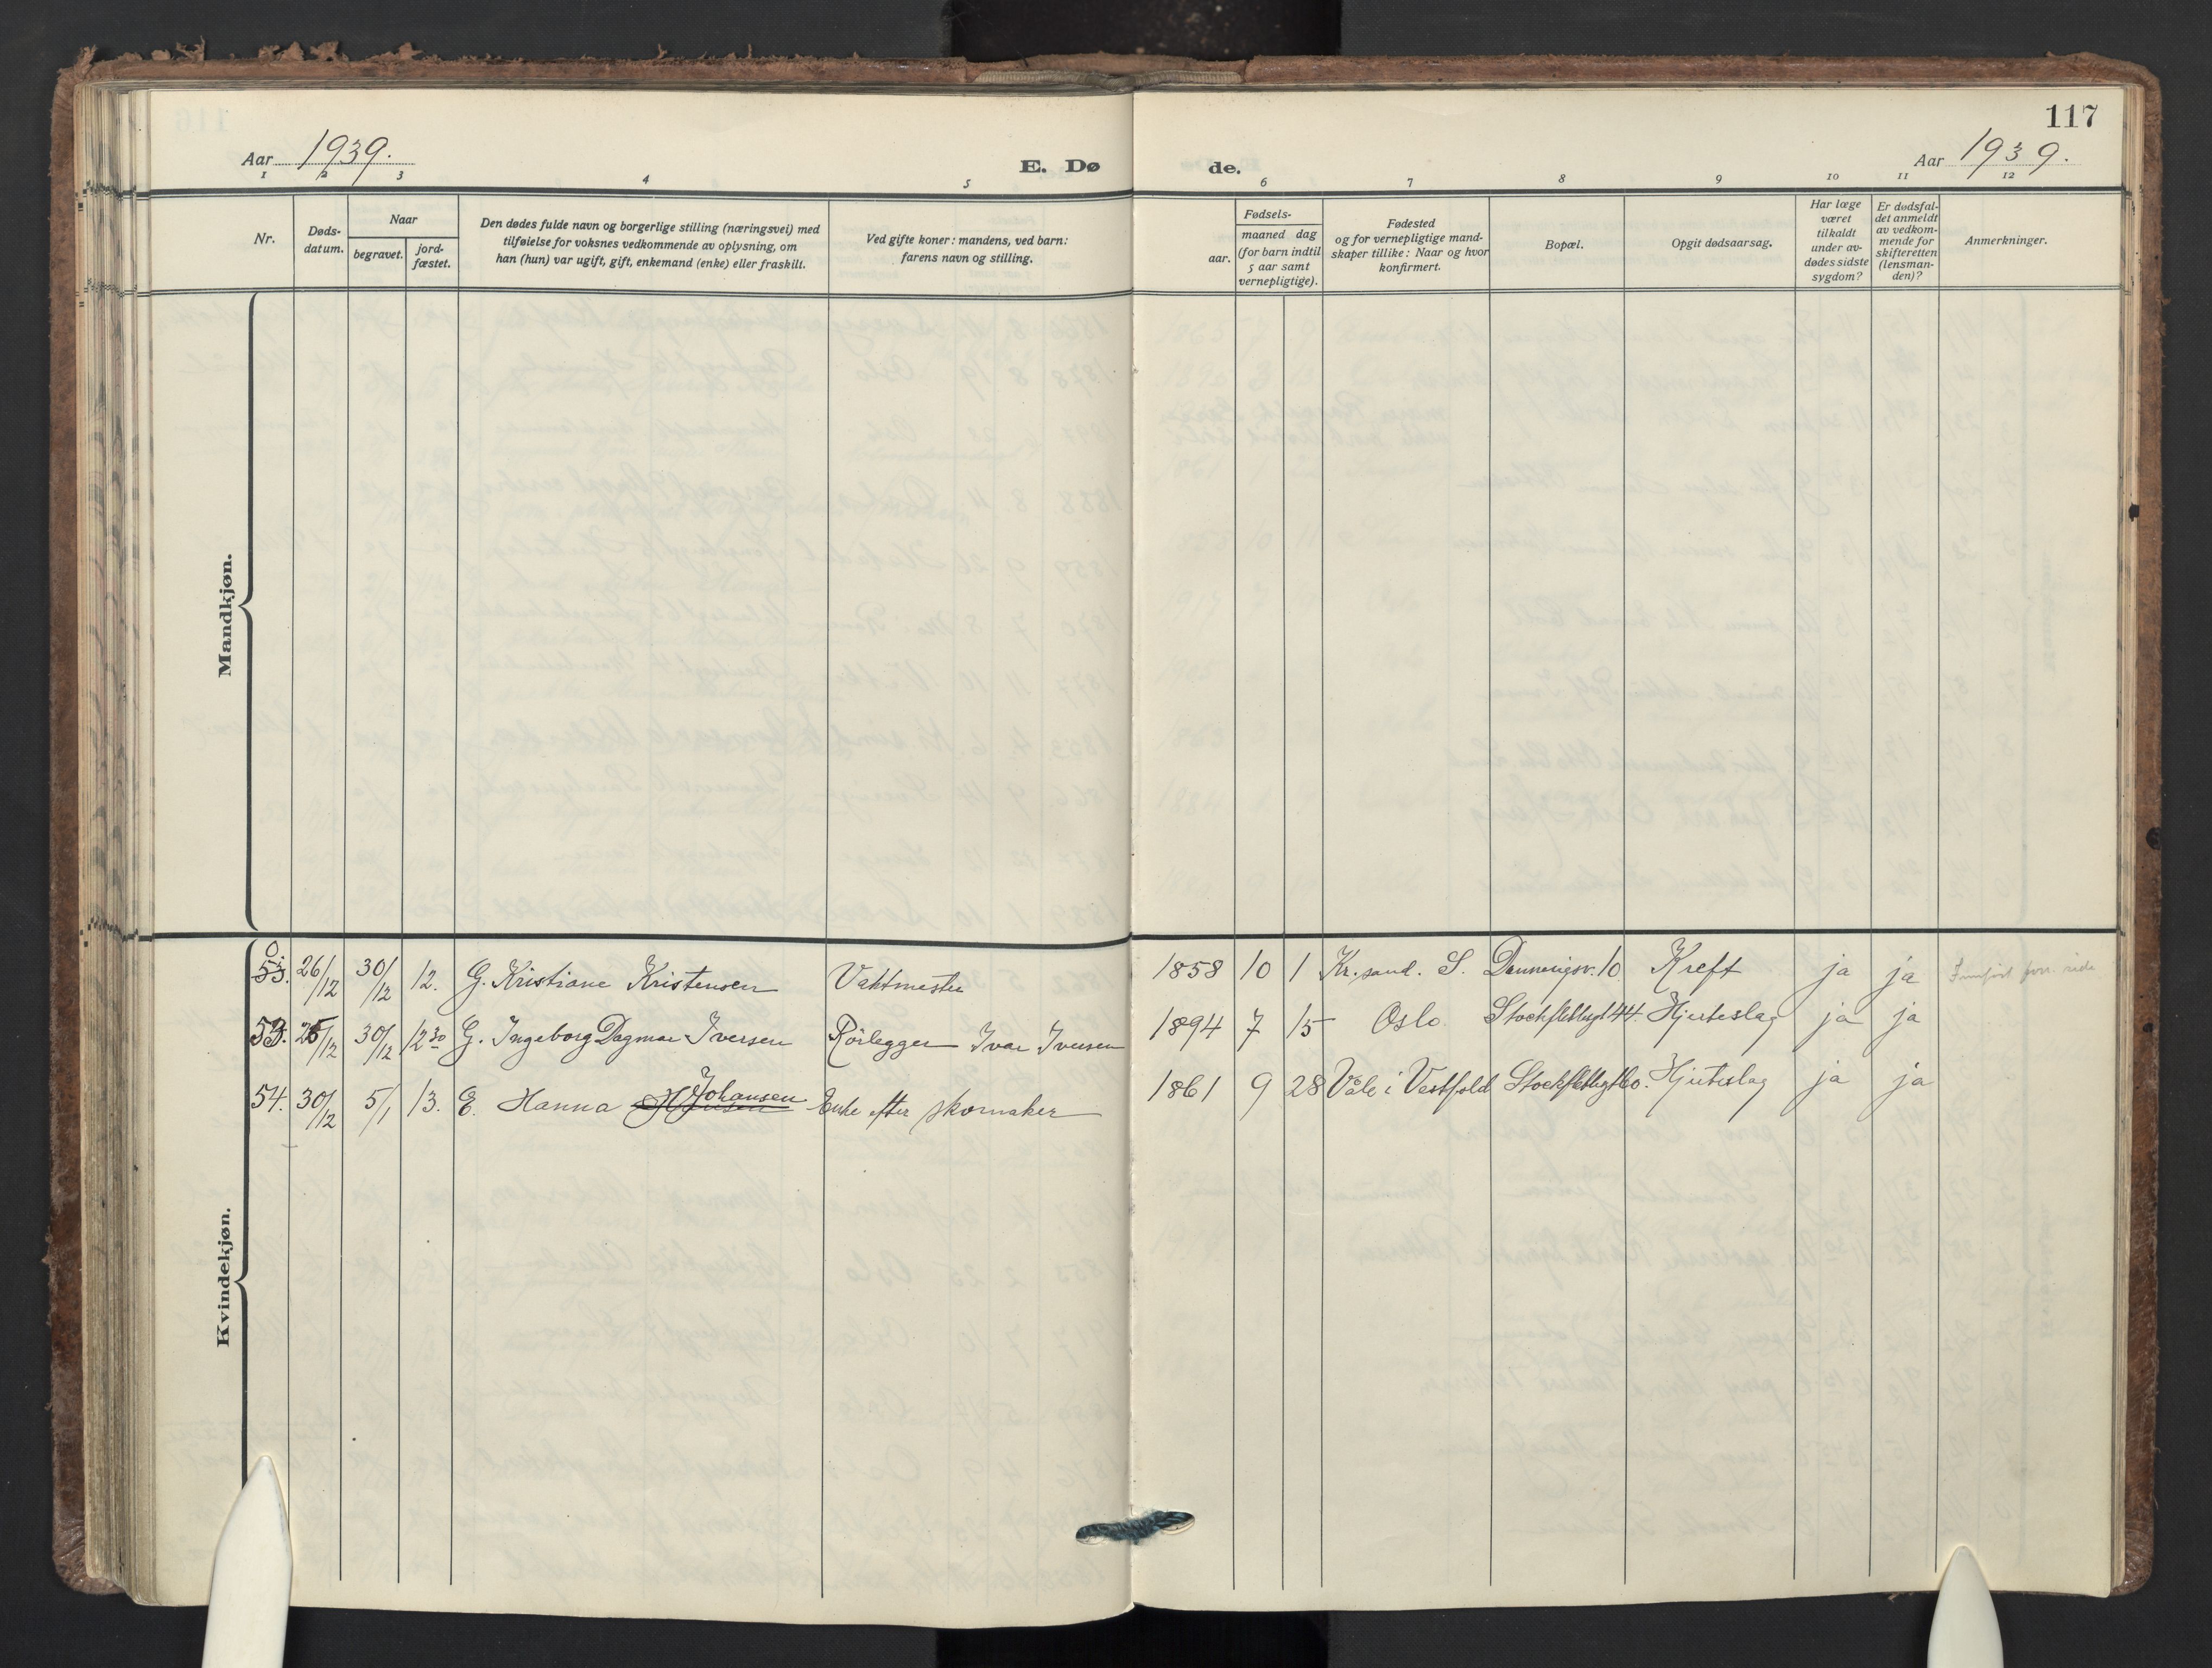 117
Aar 1939.
E. Døde.
Aar 1939.
1 2 3 4 5 6 7 8 9 10 11 12
Nr.
Døds-
datum.
Naar
begravet.
jord-
fæstet.
Den dødes fulde navn og borgerlige stilling (næringsvei) med
tilføielse for voksnes vedkommende av oplysning, om
han (hun) var ugift, gift, enkemand (enke) eller fraskilt.
Ved gifte koner: mandens, ved barn:
farens navn og stilling.
Fødsels-
aar.
maaned dag
(for barn indtil
5 aar samt
vernepligtige).
Fødested
og for vernepligtige mand-
skaper tillike: Naar og hvor
konfirmert.
Bopæl.
Opgit dødsaarsag.
Har læge
været
tilkaldt
under av-
dødes sidste
sygdom?
Er dødsfal-
det anmeldt
av vedkom-
mende for
skifteretten
(lensman-
den)?
Anmerkninger.
Mandkjøn.
Kvindekjøn.
0 53. 26/12 30/12 12. G. Kristiane Kristensen Vaktmester 1858 10 1 Kr.sand. S. 10 Kreft ja ja Innført forr. side
53. 25/12 30/12 12 30 G. Ingeborg Dagmar Iversen Rörlegger Ivar Iversen 1894 7 15 Oslo 44. Hjerteslag ja ja
54. 30/12 5/1 13. E. Hanna Johansen Enke efter skomaker 1861 9 28 Våle i Vestfold Hjerteslag ja ja